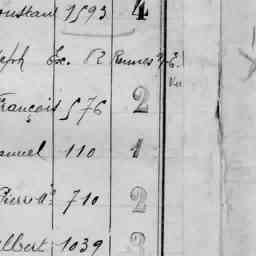 Constant 1593 4
Joseph Ex. R Rennes
François 576 2
anuel 110 1
Pierre 710 2
Albert 1039 3